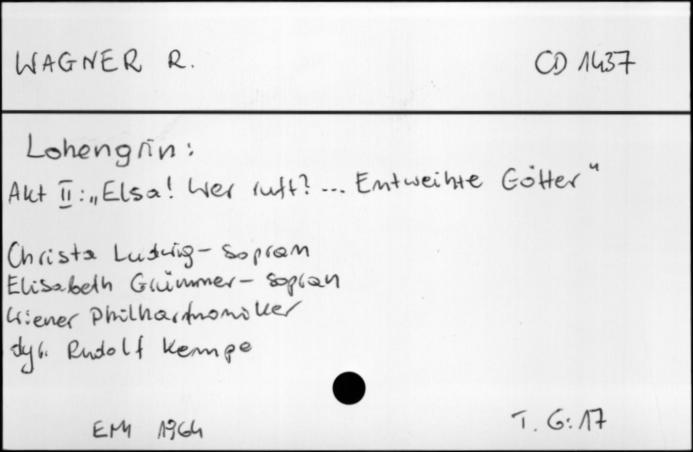 WAGNER R. CD 1437
Lohengrin:
Akt II: „Elsa! Wer ruft? ... Entweihte Götter"
Christa Ludwig - sopran
Elisabeth Grümmer - sopran
Wiener Philharmoniker
dyr. Rudolf Kempe
EMI 1964 T. 6:17